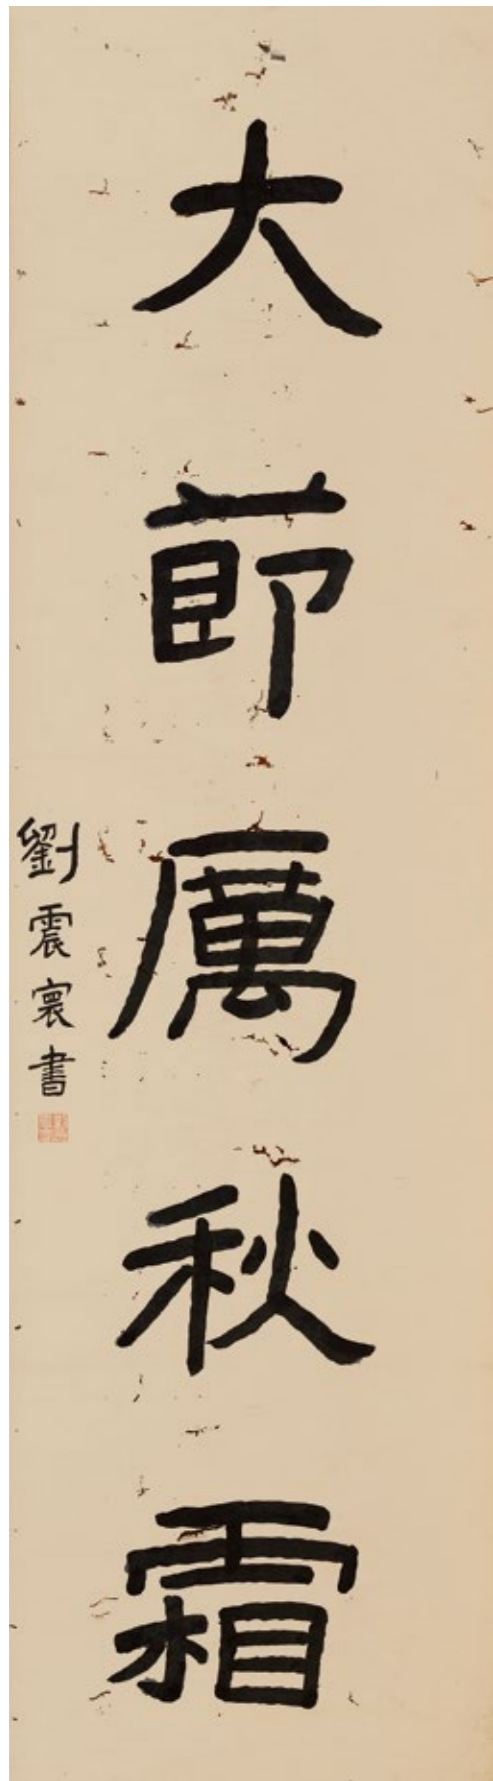 大節厲秋霜
劉震寰書